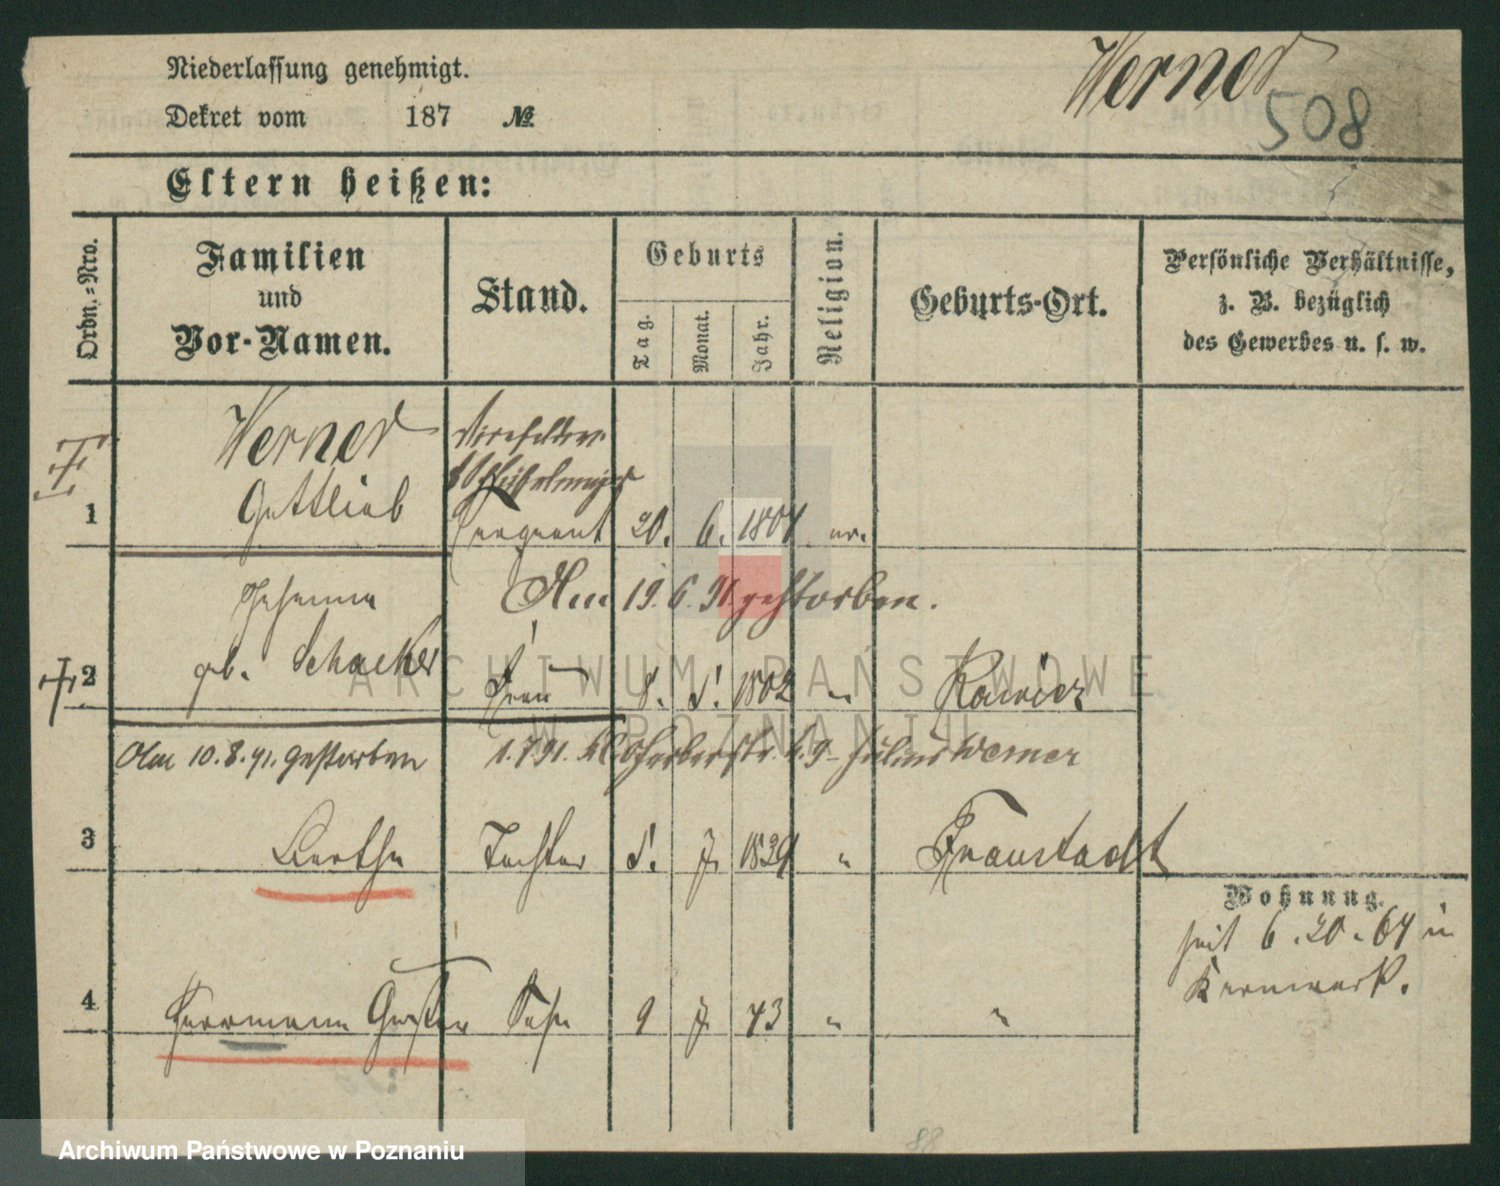 Niederlassung genehmigt.
Werner
Dekret vom 187 №
508
Eltern heißen:
Ordn.-Nro.
Familien
und
Vor-Namen.
Stand.
Geburts
Tag.
Monat.
Jahr.
Religion.
Geburts-Ort.
Persönliche Verhältnisse,
z. B. bezüglich
des Gewerbes u. s. w.
Werner
1 Gottlieb Sergeant 20. 6. 1801 ev.
Johanna
Am 19. 6. 91. gestorben.
2 gb. Schacker Frau 8. 5. 1802 " Rawicz
Am 10. 8. 91. gestorben
1. 7. 91. Gerberstr. 9 Julius Werner
3 Bertha Tochter 5. 7. 1839 " Fraustadt
Wohnung.
seit 6. 20. 64 in
Kernwerk.
4 Herrmann Gustav Sohn 9 7. 43 " "
88
ARCHIWUM PAŃSTWOWE
W POZNANIU
Archiwum Państwowe w Poznaniu